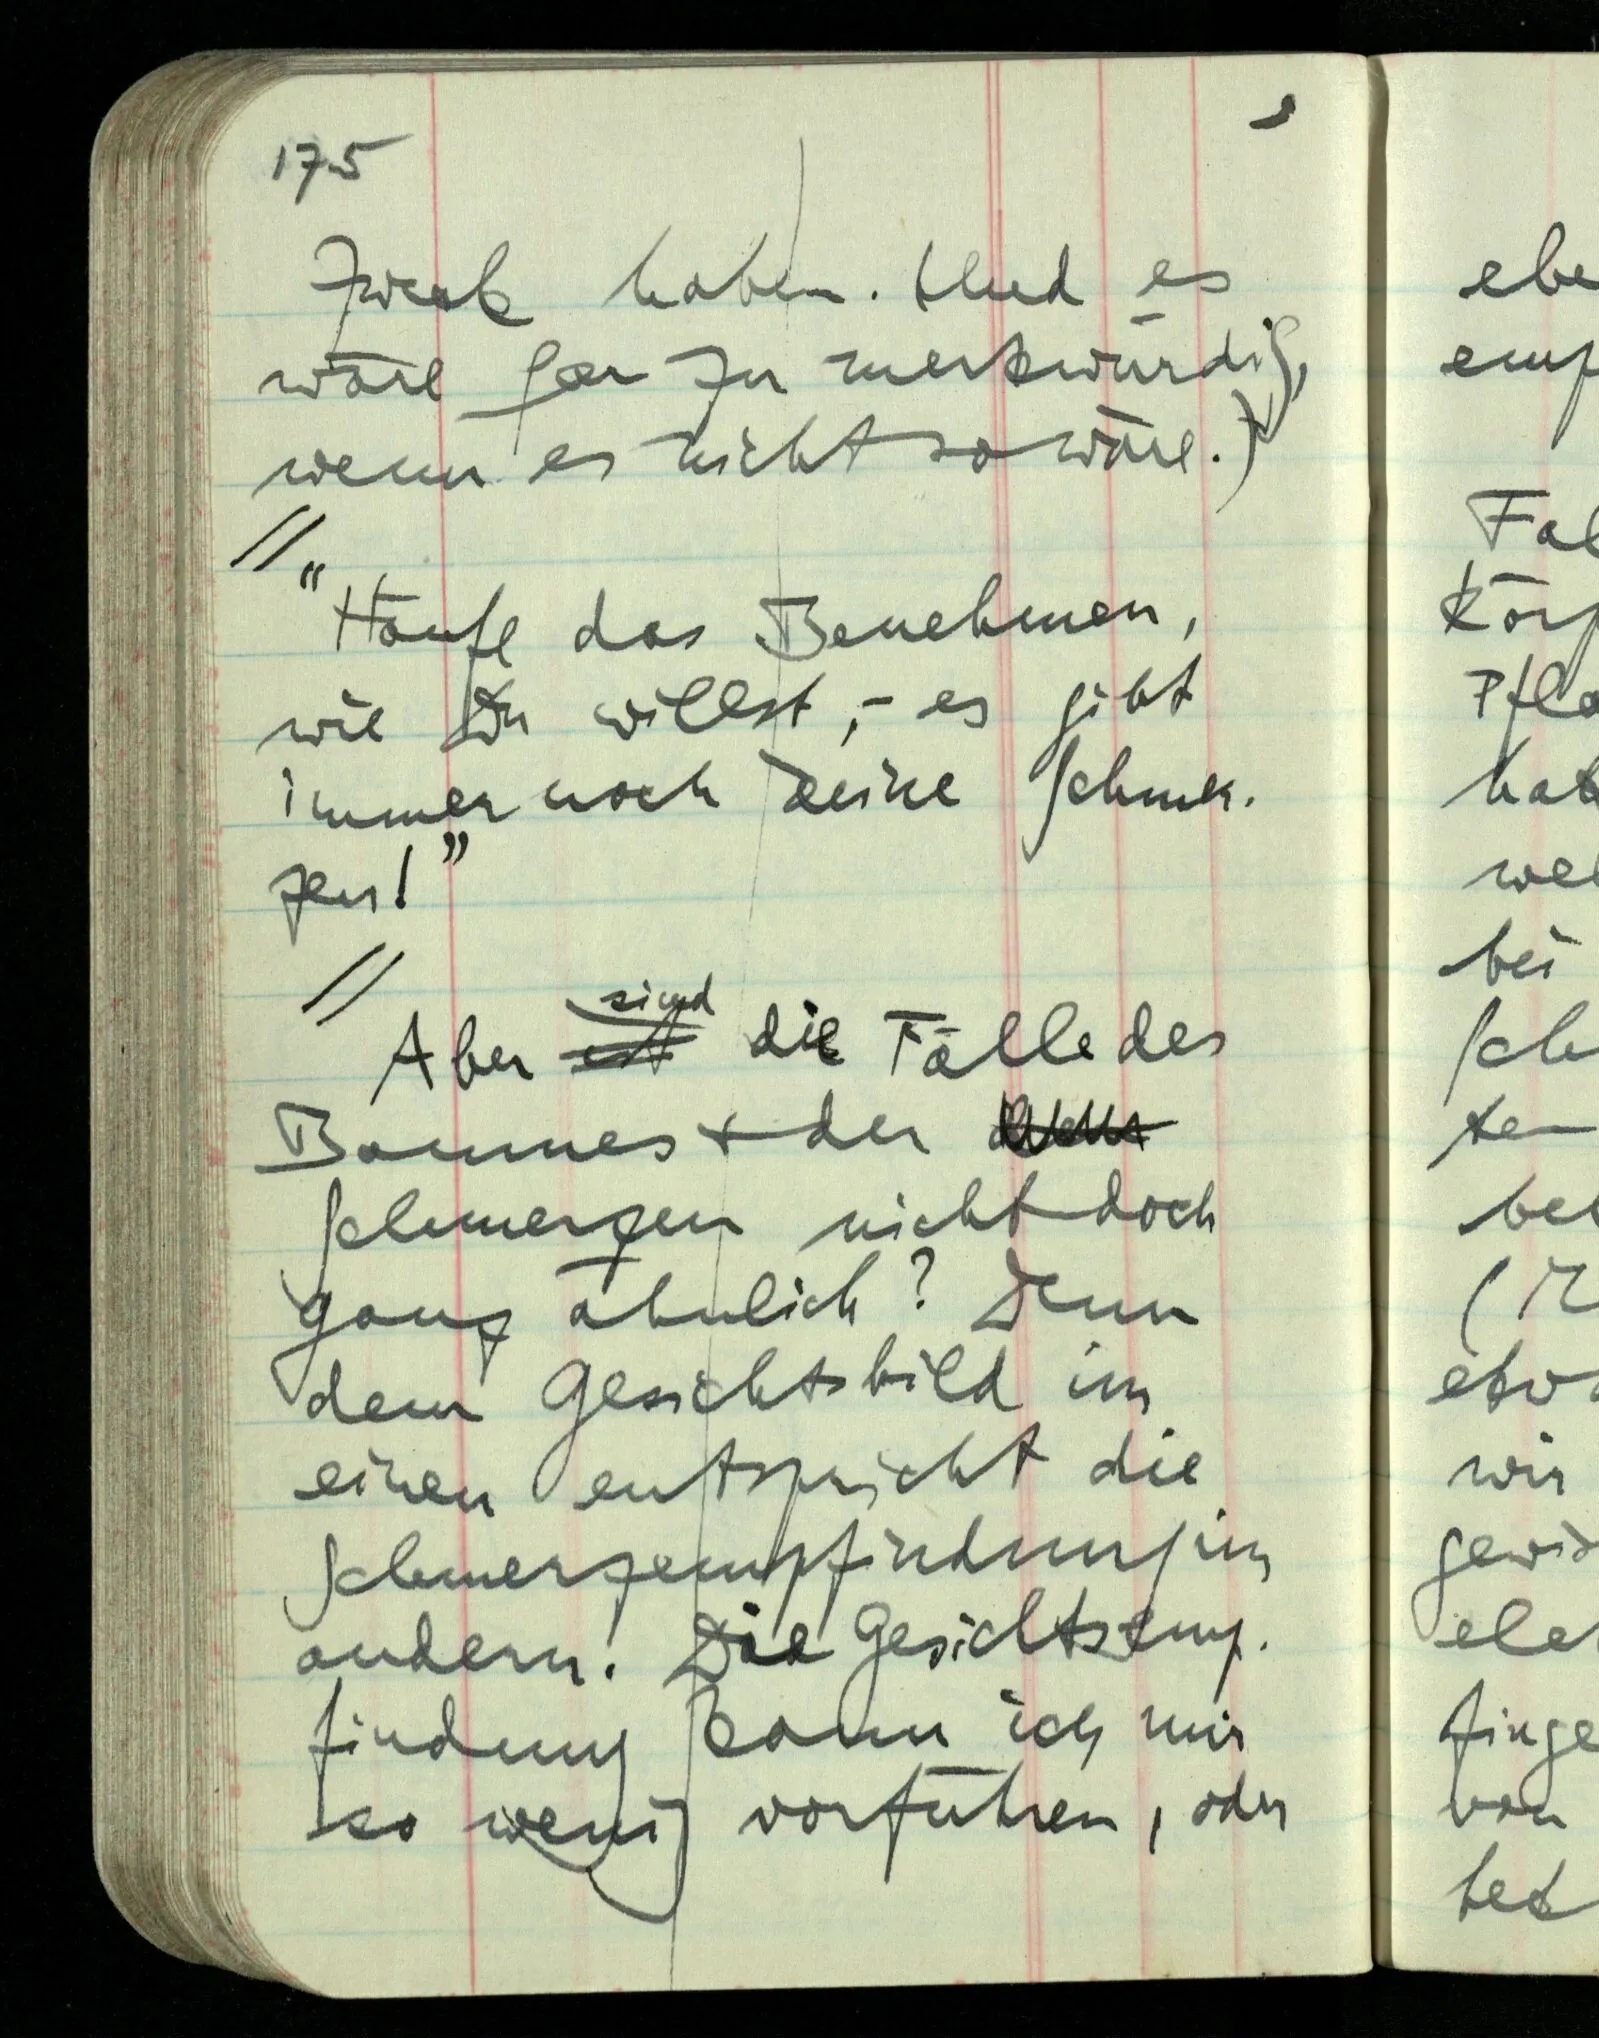 175
Zweck haben. Und es
wäre gar zu merkwürdig,
wenn es nicht so wäre.)
// „
Häufe das Benehmen,
wie Du willst, – es gibt
immer noch keine Schmer-
zen!”
//
sind
Aber ist die Fälle des
Baumes + der
Schmerzen nicht doch
ganz ähnlich? Denn
dem Gesichtsbild im
einen entspricht die
Schmerzempfindung im
andern. Die Gesichtsemp-
findung kann ich mir
so wenig vorführen, oder
ebe
emp
Fal
Körp
Pfla
hab
wel
bei
Sch
te
bet
etwa
wir
gewis
finge
von